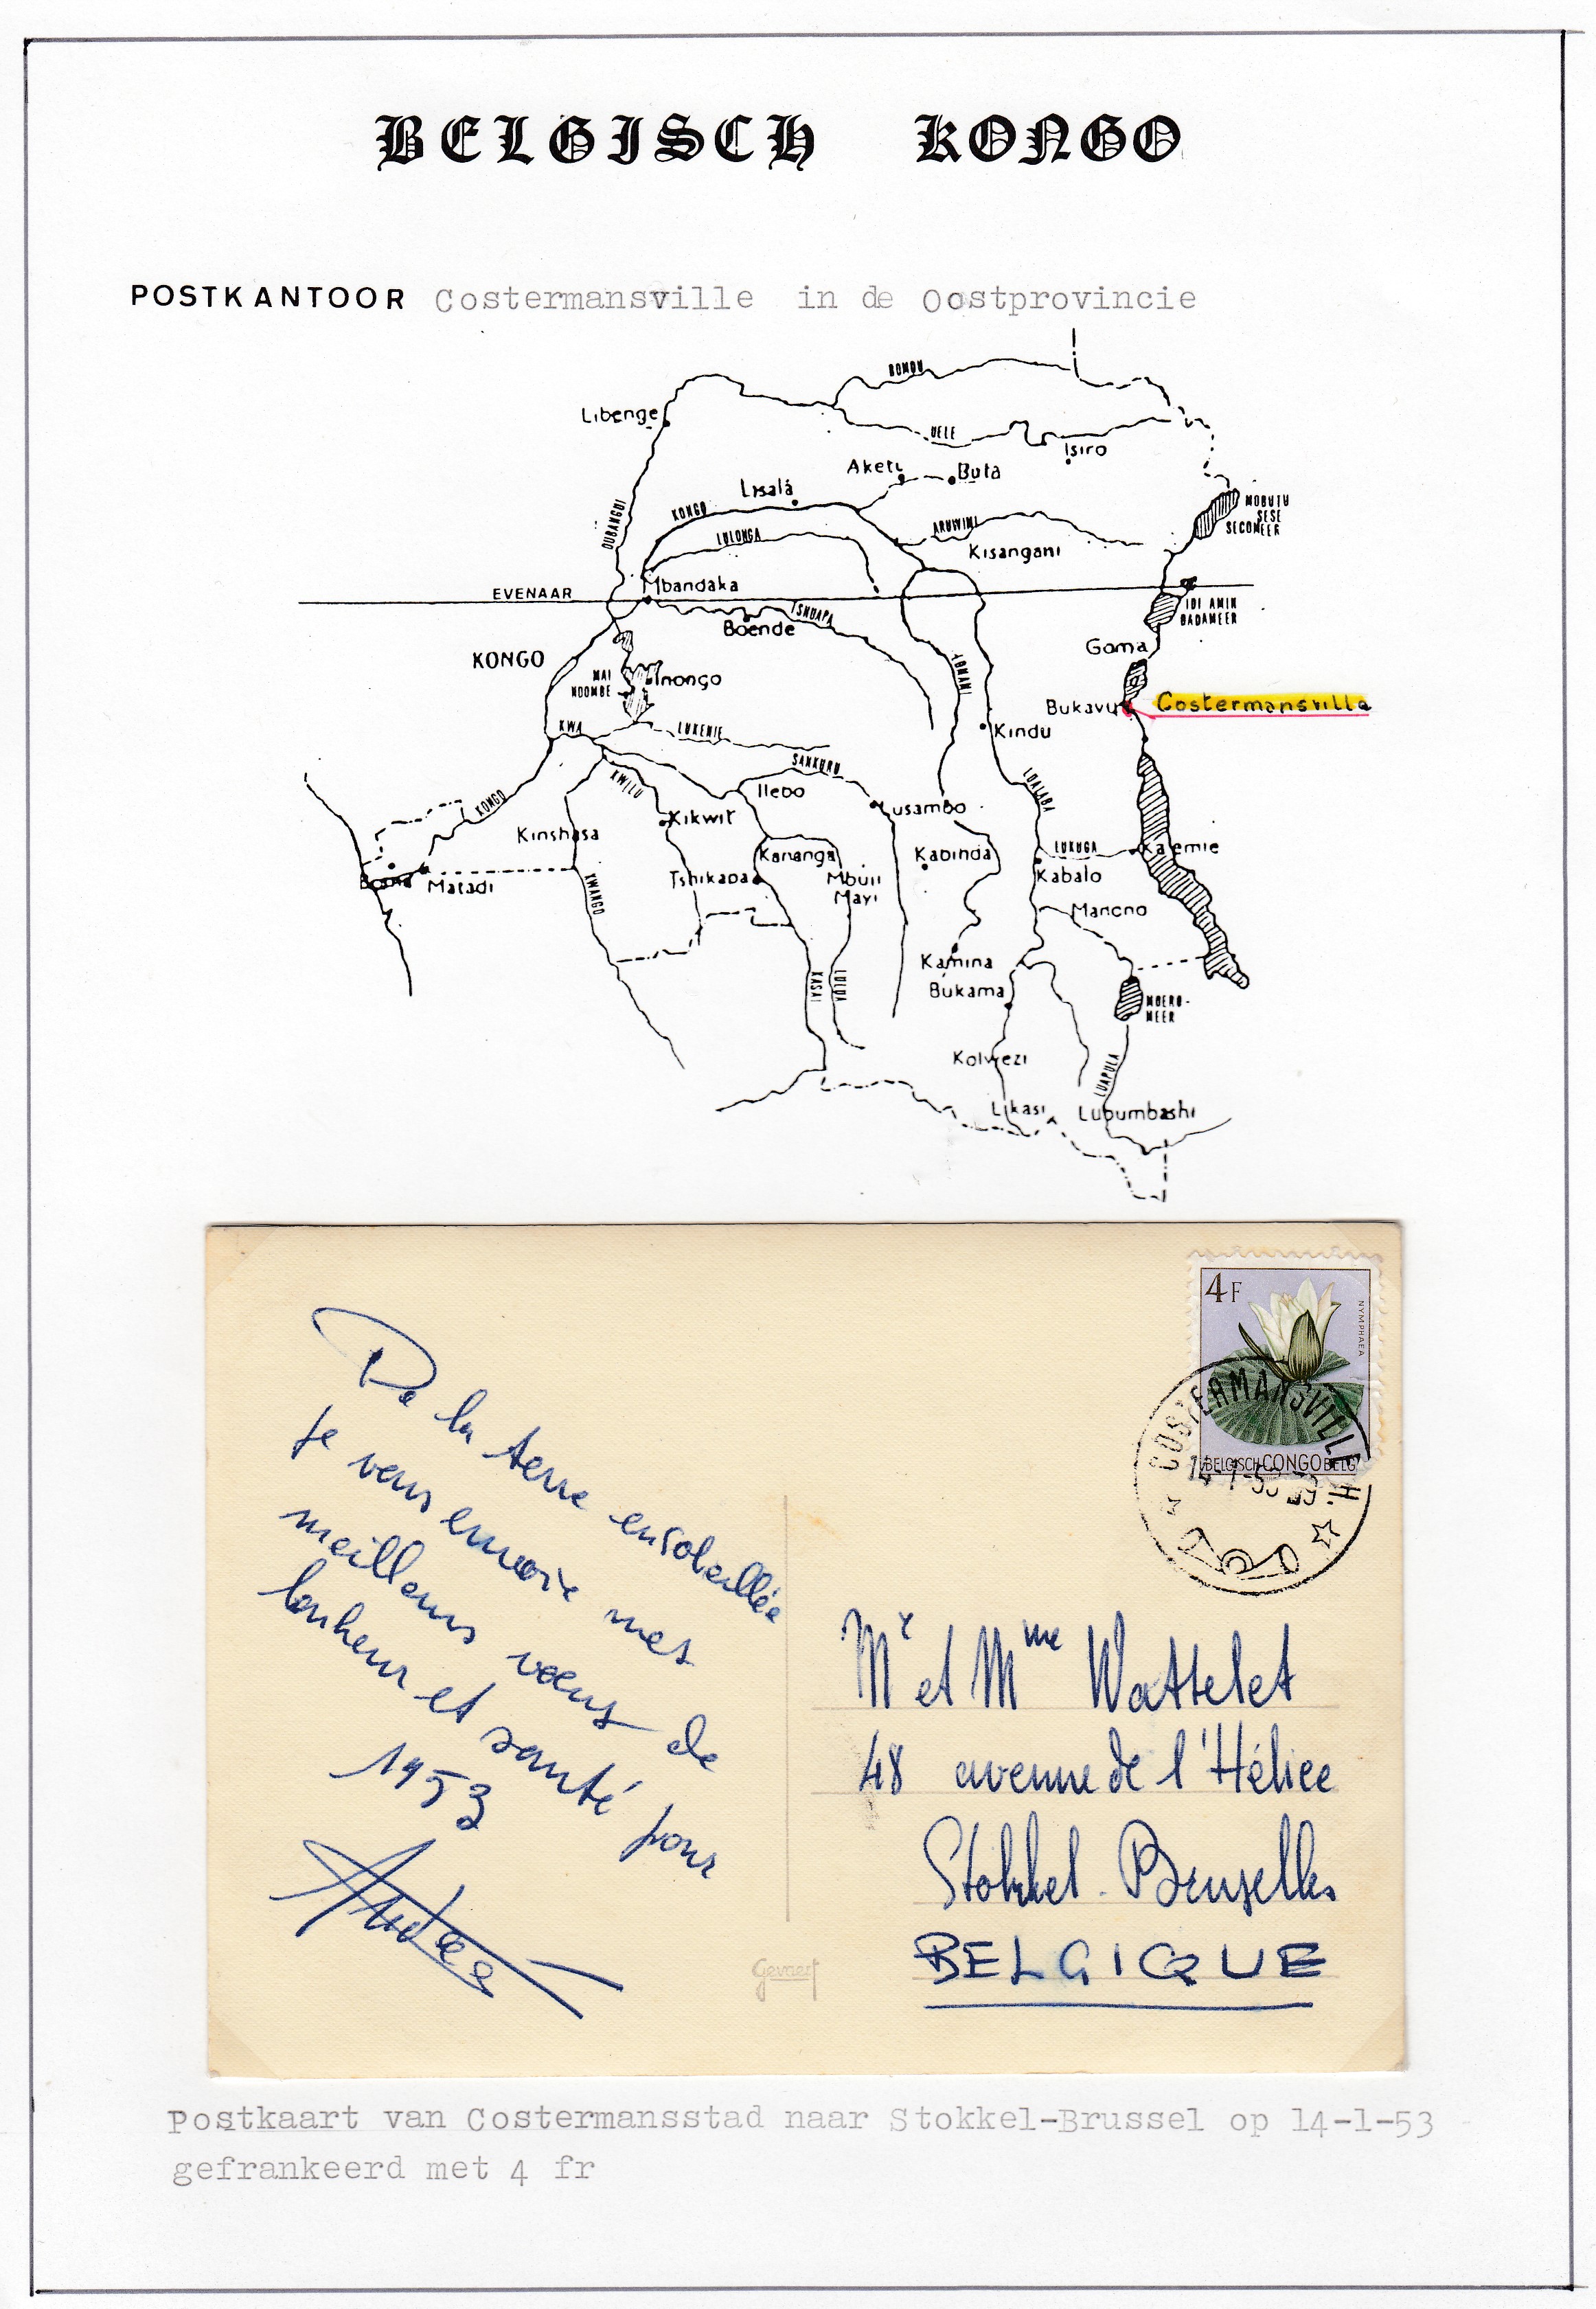 BELGISCH KONGO
POSTKANTOOR Costermansville in de Oostprovincie
BOMU
Libenge
UELE
Isiro
Aketi
Buta
Lisala
MOBUTU
SESE
SECOMEER
KONGO
OUBANGUI
LULONGA
ARUWIMI
Kisangani
Mbandaka
EVENAAR
IDI AMIN
DADAMEER
TSHUAPA
Boende
Goma
KONGO
LOMAMI
MAI
NDOMBE
Inongo
Bukavu
Costermansville
KWA
LUKENIE
Kindu
SANKURU
KWILU
LUALABA
Ilebo
KONGO
Lusambo
Kikwit
Kinshasa
LUKUGA
Kalemie
Kananga
Kabinda
Boma
Matadi
Tshikapa
Mbuji
Mayi
Kabalo
KWANGO
Manono
Kamina
KASAI
LULUA
Bukama
MOERO-
MEER
Kolwezi
LUAPULA
Likasi
Lubumbashi
4F
NYMPHAEA
BELGISCH CONGO BELGE
COSTERMANSVILLE H.
14-1-53
De la terre ensoleillée
je vous envoie mes
meilleurs voeux de
bonheur et santé pour
1953
Andrée
Mr et Mme Wattelet
48 avenue de l'Hélice
Stokkel - Bruxelles
BELGIQUE
Gevaert
Postkaart van Costermansstad naar Stokkel-Brussel op 14-1-53
gefrankeerd met 4 fr